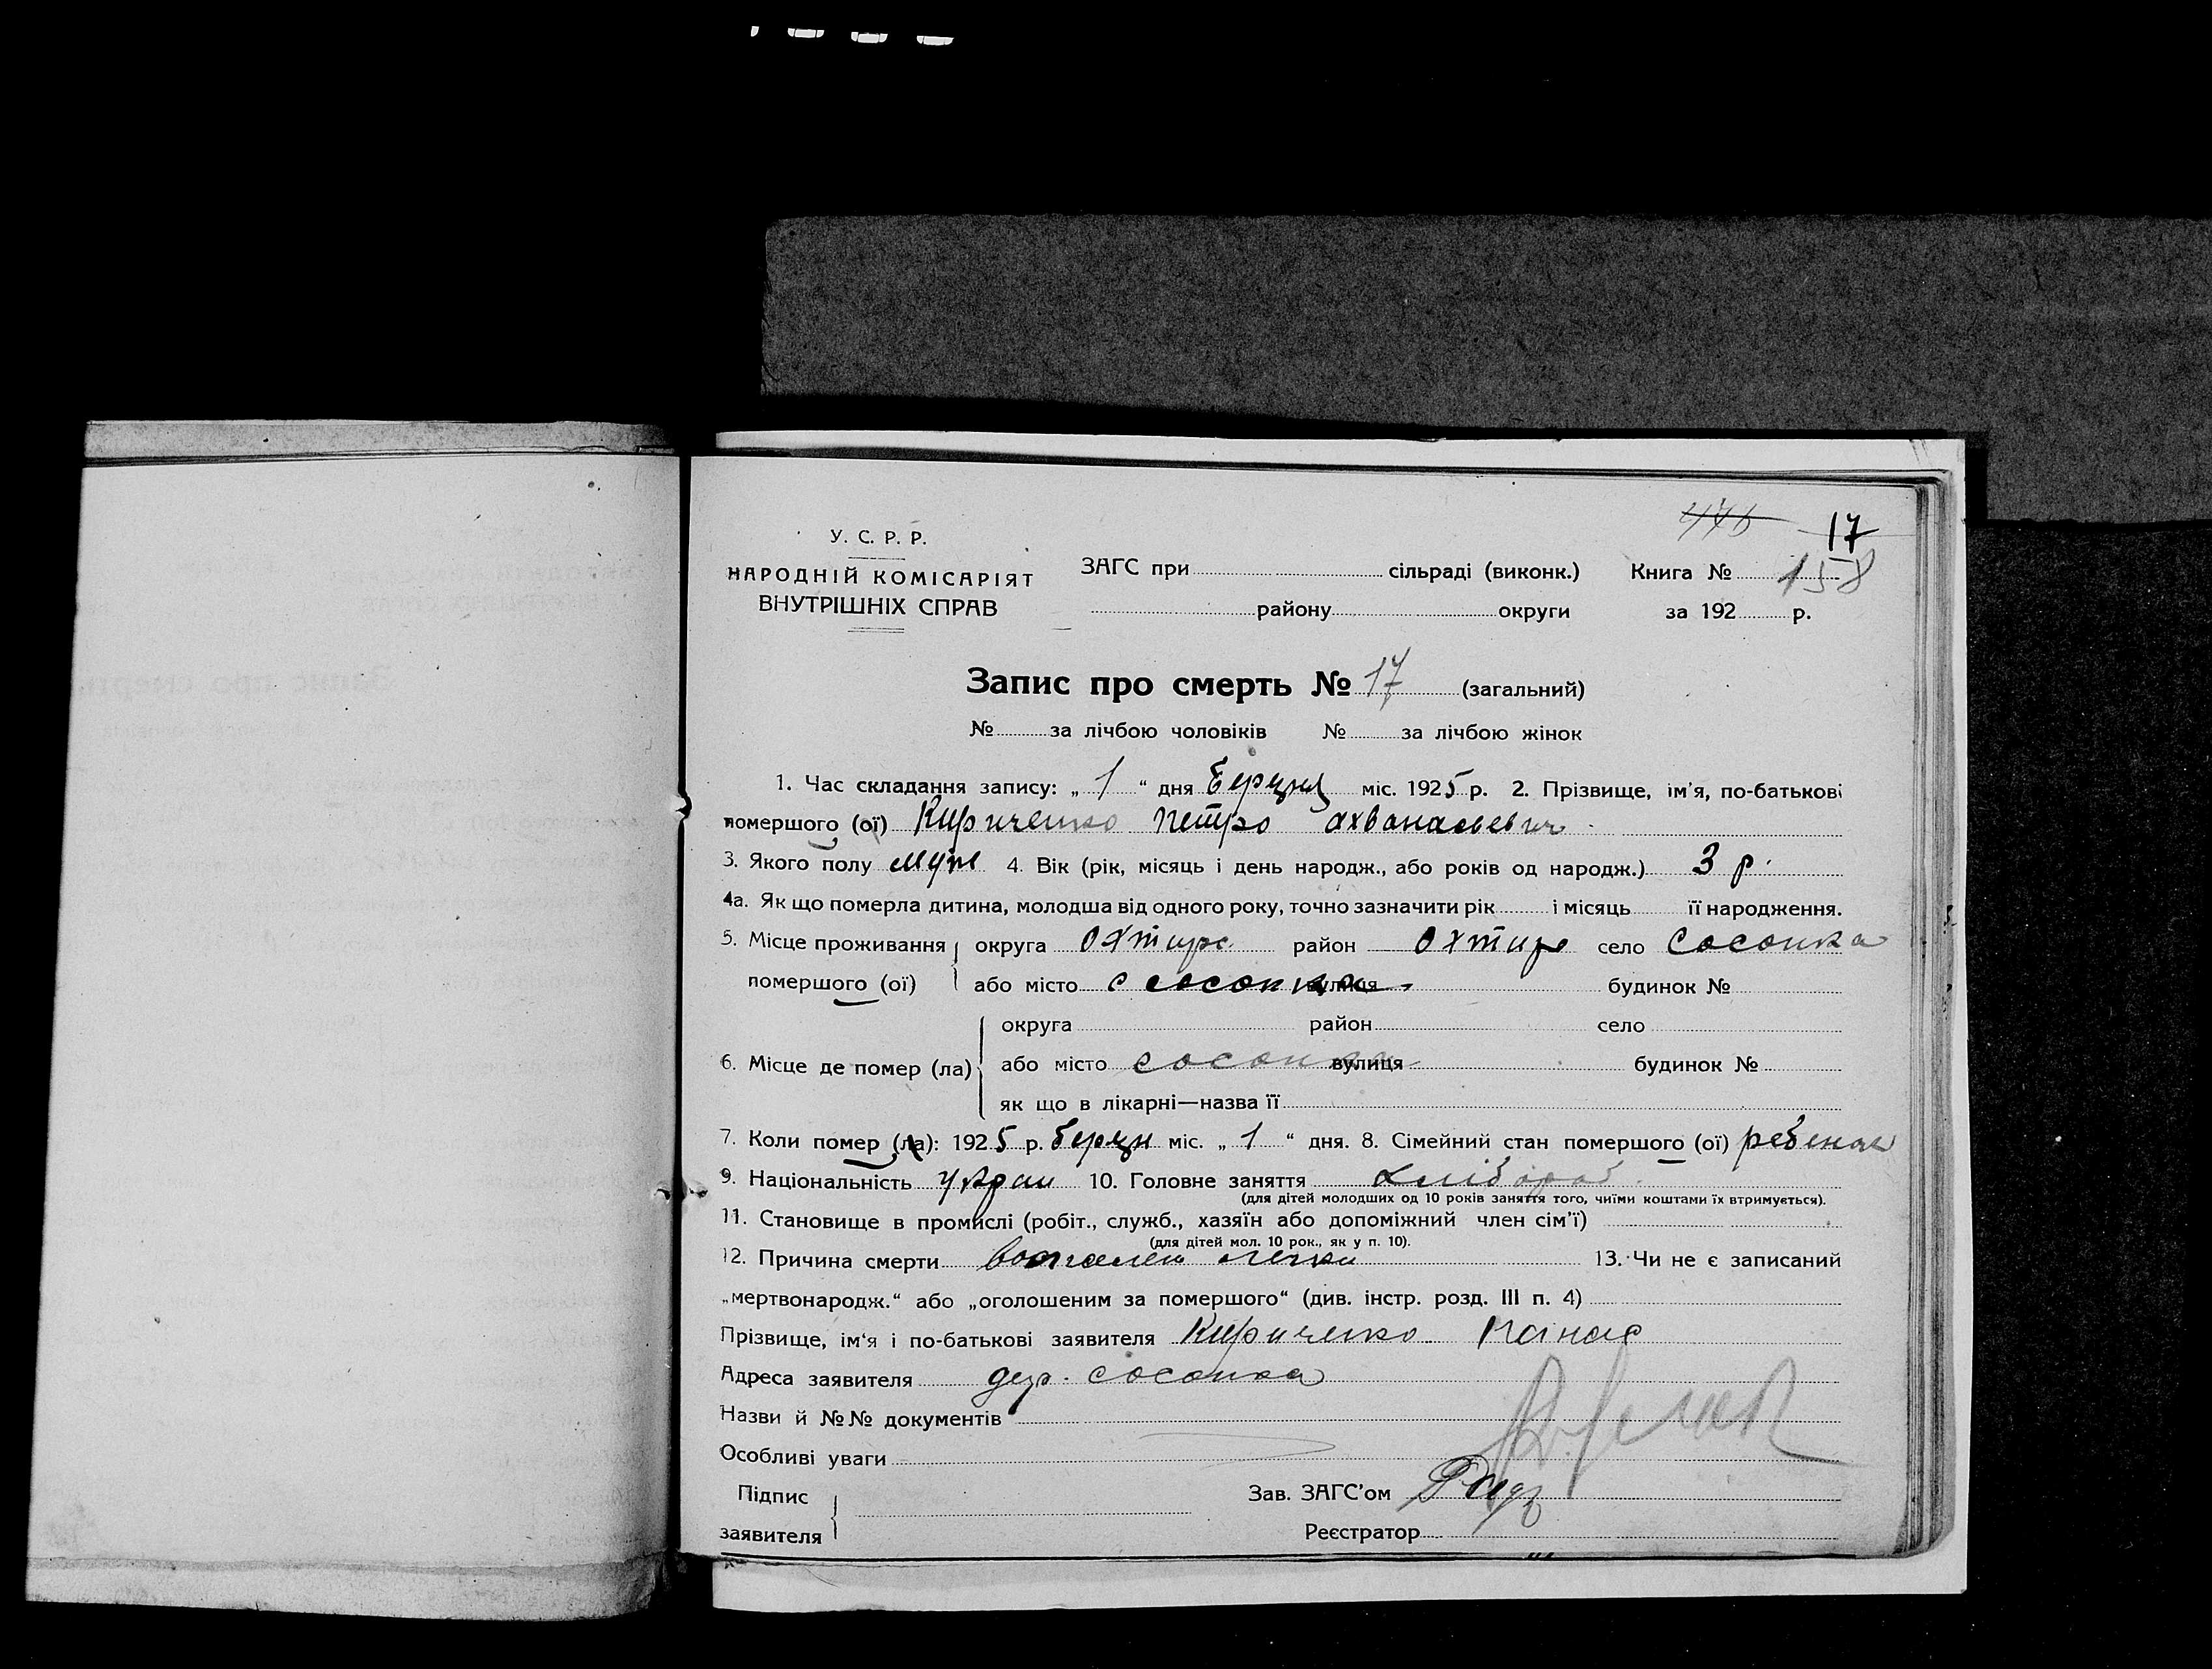 17
У. С. Р. Р.
НАРОДНІЙ КОМІСАРІЯТ
ВНУТРІШНІХ СПРАВ
ЗАГС при сільраді (виконк.) Книга № 158
району округи за 192 р.
Запис про смерть № 17 (загальний)
№ за лічбою чоловіків № за лічбою жінок
1. Час складання запису: „ 1 “ дня березня міс. 1925 р. 2. Прізвище, ім'я, по-батькові
помершого (ої) Кириченко Петро Ахванасьевич
3. Якого полу муж 4. Вік (рік, місяць і день народж., або років од народж.) 3 р.
4а. Як що померла дитина, молодша від одного року, точно зазначити рік і місяць її народження.
5. Місце проживання округа Охтирс район Охтир село Сосонка
помершого (ої) або місто с сосонка вулиця будинок №
округа район село
6. Місце де помер (ла) або місто сосонка вулиця будинок №
як що в лікарні—назва її
7. Коли помер (ла): 1925 р. березн міс. „ 1 “ дня. 8. Сімейний стан помершого (ої) ребенок
9. Національність Украи 10. Головне заняття хлібороб
(для дітей молодших од 10 років заняття того, чиїми коштами їх втримується).
11. Становище в промислі (робіт., служб., хазяїн або допоміжний член сім'ї)
(для дітей мол. 10 рок., як у п. 10).
12. Причина смерти 13. Чи не є записаний
„мертвонародж.“ або „оголошеним за помершого“ (див. інстр. розд. III п. 4)
Прізвище, ім'я і по-батькові заявителя Кириченко Панас
Адреса заявителя дер. сосонка
Назви й №№ документів
Особливі уваги
Підпис Зав. ЗАГС'ом
заявителя Реєстратор